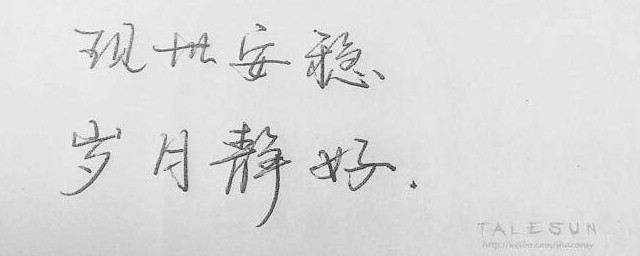 现世安稳
岁月静好.
TALESUN
http://weibo.com/sharonsy